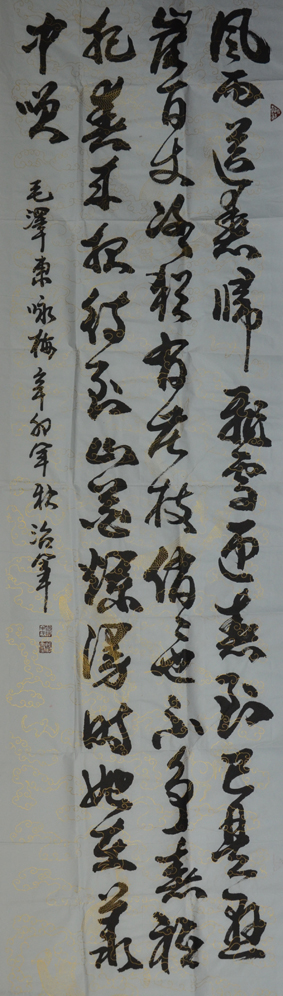 風雨送春歸飛雪迎春到已是懸
崖百丈冰猶有花枝俏々也不争春祗
把春来报待到山花爛漫时她在叢
中咲
毛澤東詠梅辛卯年秋治